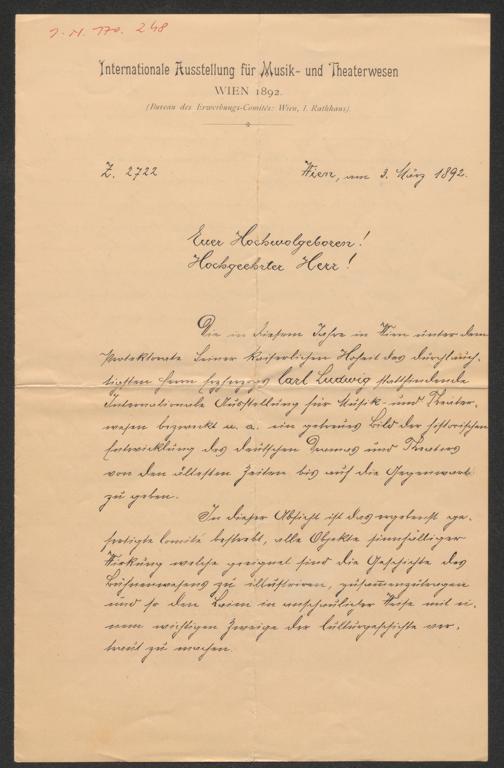 J. N. 170. 248
Internationale Ausstellung für Musik- und Theaterwesen
WIEN 1892.
(Bureau des Erwerbungs-Comités: Wien, I. Rathhaus).
Z. 2722
Wien, am 3. März 1892.
Euer Hochwolgeboren!
Hochgeehrter Herr!
Die in diesem Jahre in Wien unter dem
Protektorate Seiner Kaiserlichen Hoheit des durchlauch-
tigsten Herrn Erzherzogs Carl Ludwig stattfindende
Internationale Ausstellung für Musik- und Theater-
wesen bezweckt u. a. ein getreues Bild der historischen
Entwicklung des deutschen Dramas und Theaters
von den ältesten Zeiten bis auf die Gegenwart
zu geben.
In dieser Absicht ist das ergebenst ge-
fertigte Comité bestrebt, alle Objekte sinnfälliger
Wirkung welche geeignet sind die Geschichte des
Bühnenwesens zu illustriren, zusammenzutragen
und so den Laien in anschaulicher Weise mit ei-
nem wichtigen Zweige der Culturgeschichte ver-
traut zu machen.